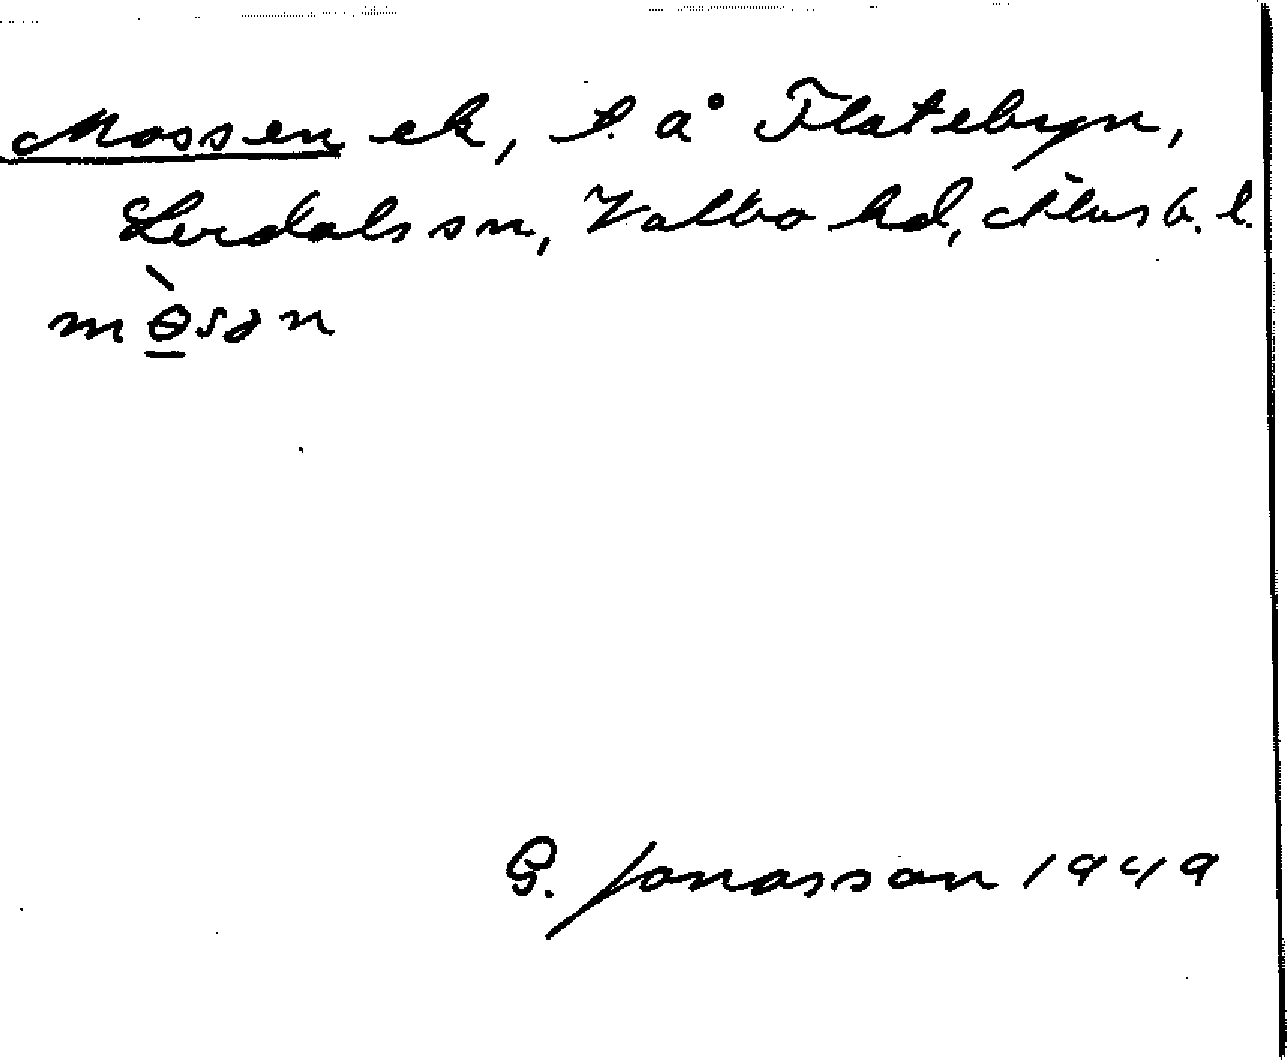 Mossen ek, l. å Flatebyn,
Lerdals sn, Valbo hd, Älvsb. l.
mɵ̀sən
G. Jonasson 1949